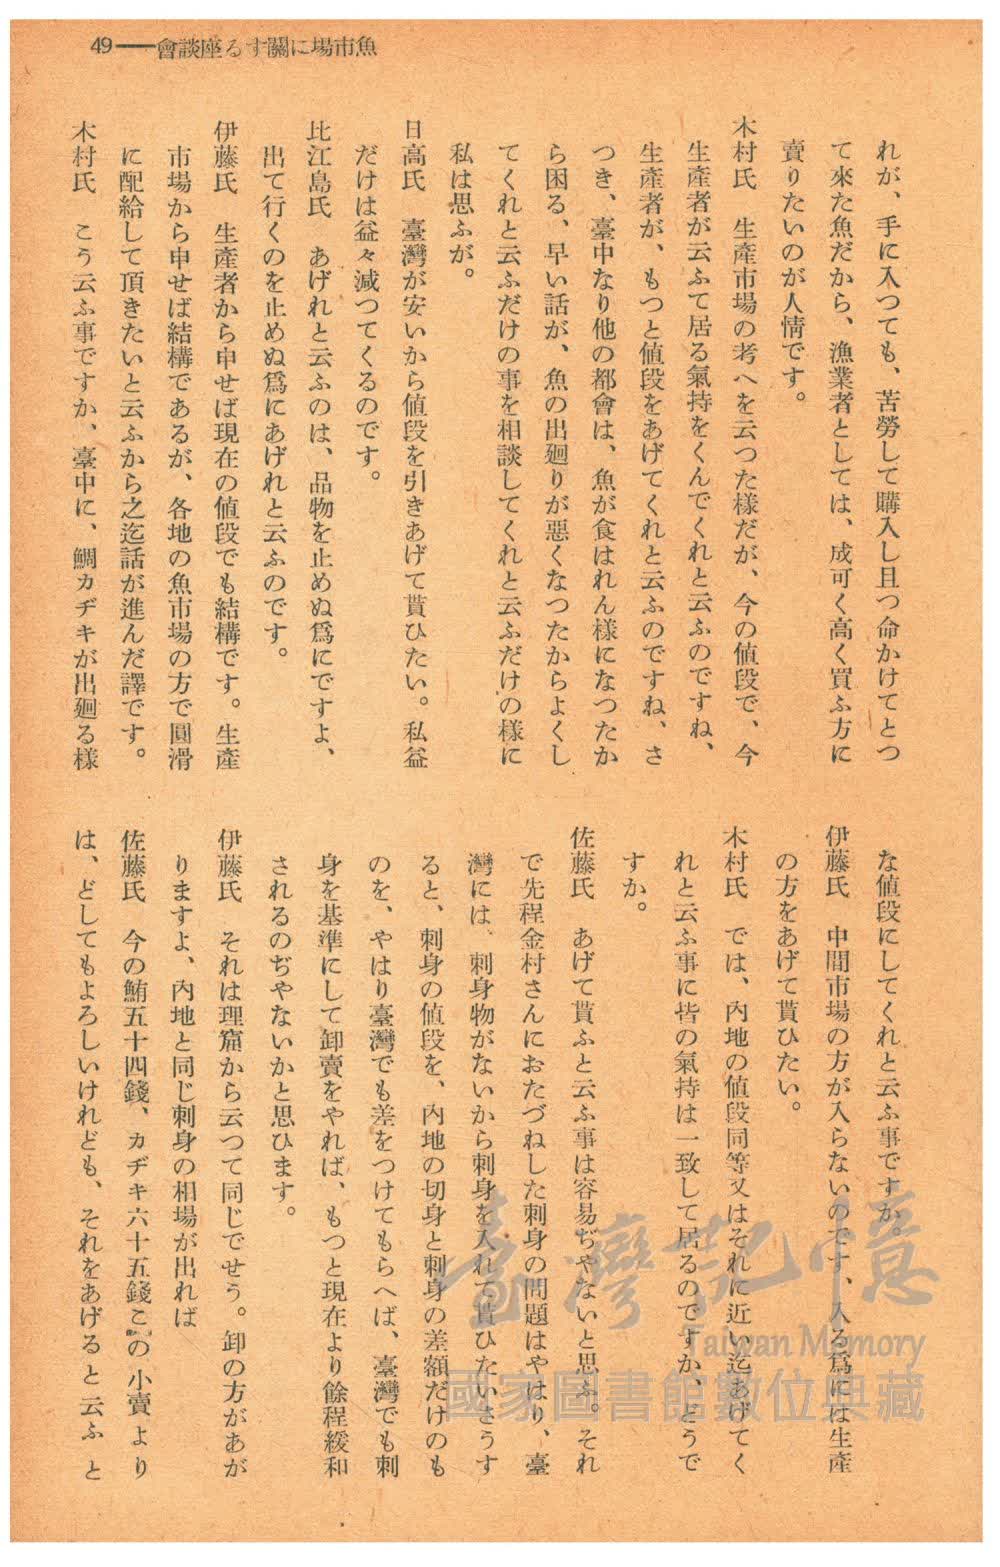 魚市場に關する座談會――49
れが、手に入つても、苦勞して購入し且つ命かけてとつ
て來た魚だから、漁業者としては、成可く高く買ふ方に
賣りたいのが人情です。
木村氏　生産市場の考へを云つた樣だが、今の値段で、今
生産者が云ふて居る氣持をくんでくれと云ふのですね、
生産者が、もつと値段をあげてくれと云ふのですね、さ
つき、臺中なり他の都會は、魚が食はれん樣になつたか
ら困る、早い話が、魚の出廻りが悪くなつたからよくし
てくれと云ふだけの事を相談してくれと云ふだけの樣に
私は思ふが。
日高氏　臺灣が安いから値段を引きあげて貰ひたい。私益
だけは益々減つてくるのです。
比江島氏　あげれと云ふのは、品物を止めぬ爲にですよ、
出て行くのを止めぬ爲にあげれと云ふのです。
伊藤氏　生産者から申せば現在の値段でも結構です。生産
市場から申せば結構であるが、各地の魚市場の方で圓滑
に配給して頂きたいと云ふから之迄話が進んだ譯です。
木村氏　こう云ふ事ですか、臺中に、鯛カヂキが出廻る樣
な値段にしてくれと云ふ事ですか。
伊藤氏　中間市場の方が入らないのです、入る爲には生産
の方をあげて貰ひたい。
木村氏　では、内地の値段同等又はそれに近い迄あげてく
れと云ふ事に皆の氣持は一致して居るのですか、どうで
すか。
佐藤氏　あげて貰ふと云ふ事は容易ぢやないと思ふ。それ
で先程金村さんにおたづねした刺身の問題はやはり、臺
灣には、刺身物がないから刺身を入れて貰ひたいさうす
ると、刺身の値段を、内地の切身と刺身の差額だけのも
のを、やはり臺灣でも差をつけてもらへば、臺灣でも刺
身を基準にして卸賣をやれば、もつと現在より餘程緩和
されるのぢやないかと思ひます。
伊藤氏　それは理窟から云つて同じでせう。卸の方があが
りますよ、内地と同じ刺身の相場が出れば
佐藤氏　今の鮪五十四錢、カヂキ六十五錢この小賣より
は、どしてもよろしいけれども、それをあげると云ふと
臺灣記憶
Taiwan Memory
國家圖書館數位典藏